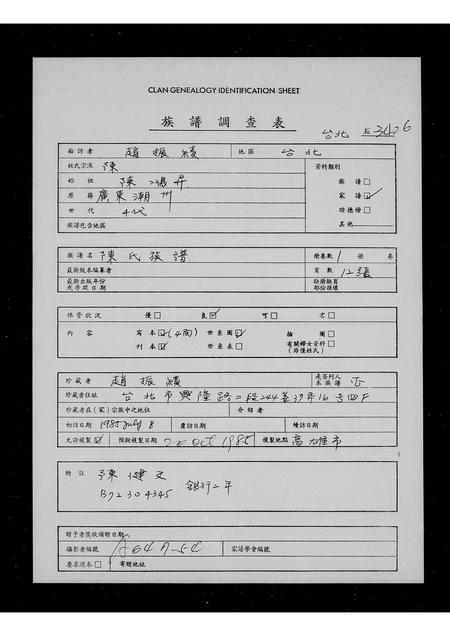 CLAN GENEALOGY IDENTIFICATION SHEET
族譜調查表
台北 3426
面訪者 趙振績 地區 台北
姓氏宗派 陳 資料類別
始祖 陳 昇 族譜□
原籍 廣東潮州 家譜☑
世代 4代 功德榜□
族譜包含地區 其他
族譜名 陳氏族譜 冊卷數 1 冊 卷
最新版本編纂者 頁數 12張
最新出版年份或序跋日期 缺冊缺頁部份損壞
保管狀況 優□ 良☑ 可□ 劣□
內容 寫本☑ 世系圖☑ 插圖□
刊本☑ 世系表□ 有關婦女資料□
(非僅姓氏)
珍藏者 趙振績 是否列入本族譜 否
珍藏者住址 台北市興隆路二段244巷37弄16号四F
珍藏者在(家)宗族中之地位 介紹者
初訪日期 1985 July 8 覆訪日期 續訪日期
允許複製☑ 預擬複製日期 20 Oct 1985 複製地點 高雄市
附註 陳健文
B72304345
贈予者獎狀頒贈日期
攝影者編號 A64A-54 家譜學會編號
要求後本□ 寄贈地址